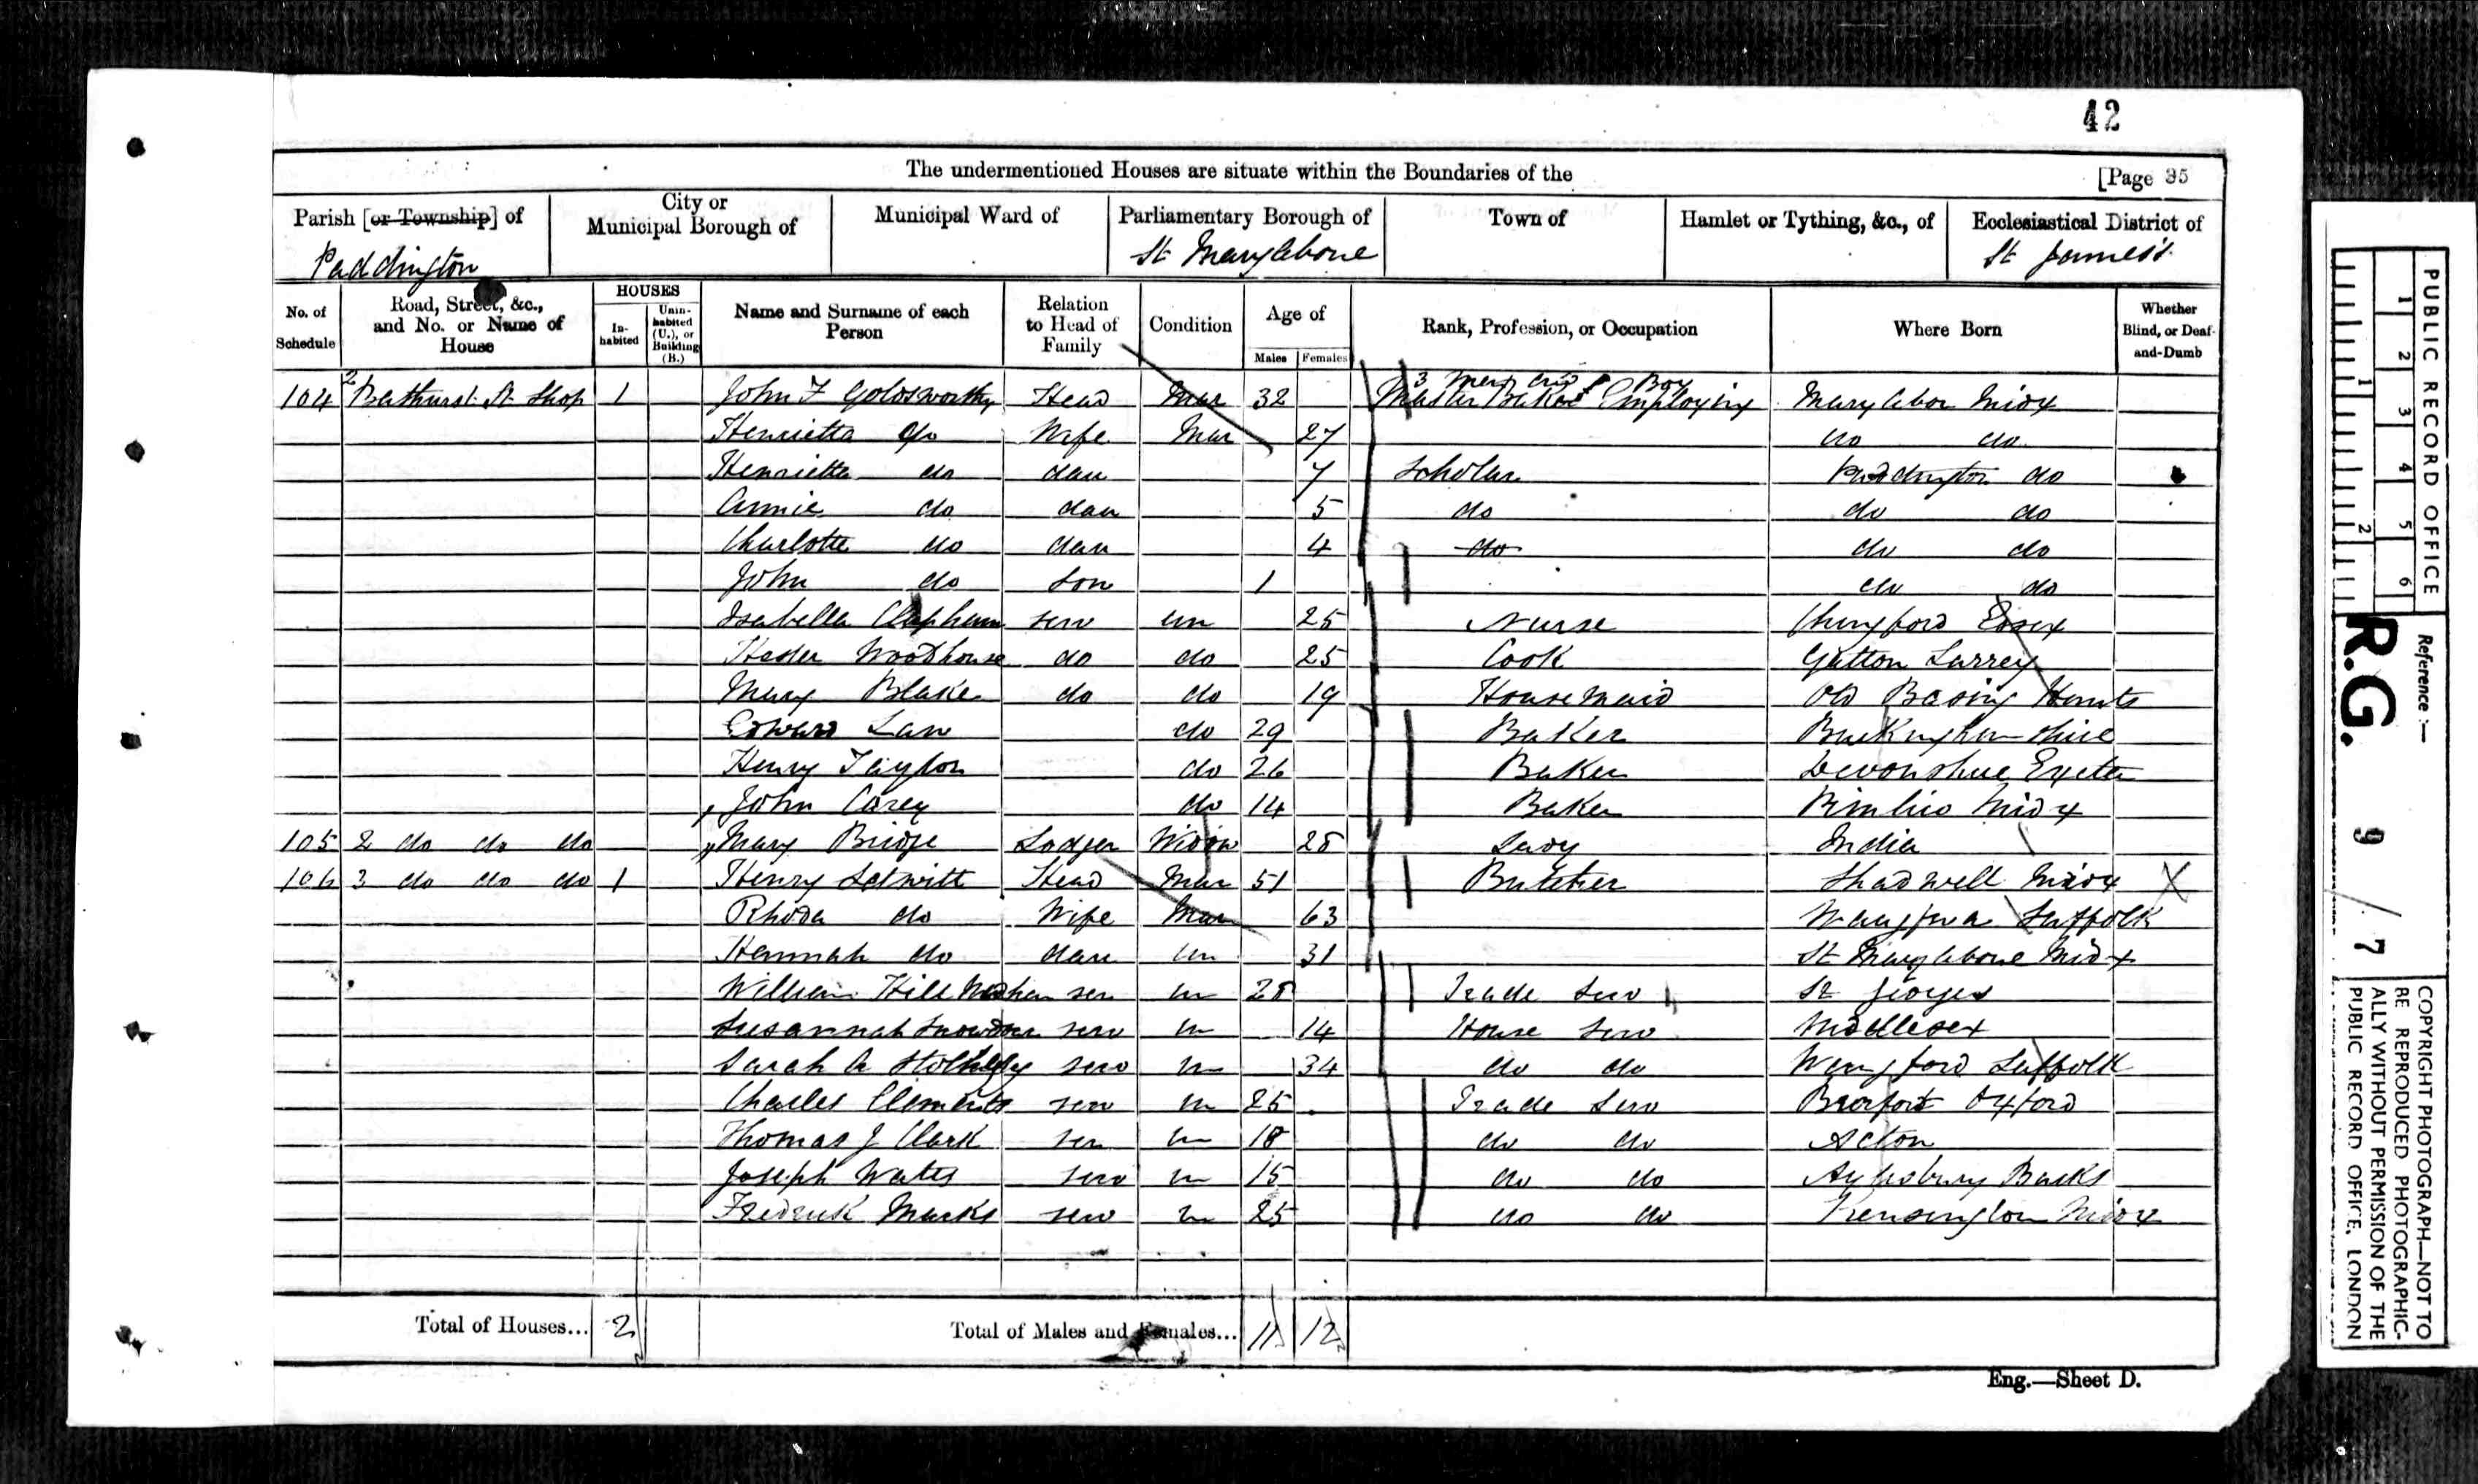 42
The undermentioned Houses are situate within the Boundaries of the
[Page 35
Parish [or Township] of
City or Municipal Borough of
Municipal Ward of
Parliamentary Borough of
Town of
Hamlet or Tything, &c., of
Ecclesiastical District of
Paddington St Marylebone St James's
No. of Schedule
Road, Street, &c., and No. or Name of House
HOUSES
In-habited
Unin-habited (U.), or Building (B.)
Name and Surname of each Person
Relation to Head of Family
Condition
Age of
Males Females
Rank, Profession, or Occupation
Where Born
Whether Blind, or Deaf-and-Dumb
3 men and Boy
104 2 Bathurst St Shop 1 John F Goldsworthy Head Mar 32 Master Baker Employing Marylebon Midx
Henrietta do Wife Mar 27 do do
Henrietta do dau 7 Scholar Paddington do
Annie do dau 5 do do do
Charlotte do dau 4 do do do
John do Son 1 do do
Isabella Clapham serv un 25 Nurse Chingford Essex
Hester Woodhouse do do 25 Cook Gatton Surrey
Mary Blake do do 19 Housemaid Old Basing Hants
Edward Law do 29 Baker Buckinghamshire
Henry Taylor do 26 Baker Devonshire Exeter
John Carey do 14 Baker Pimlico Midx
105 2 do do do Mary Bridge Lodger Widow 28 India
106 3 do do do 1 Henry Head Mar 51 Butcher Shadwell Midx
Rhoda do Wife Mar 63 Suffolk
Hannah do dau un 31 St Marylebone Midx
William Hill ser un 28 Trade Serv St Georges
Susannah serv un 14 House Serv Middlesex
Sarah A serv un 34 do do Wangford Suffolk
Charles Clements serv un 25 Trade Serv Oxford
Thomas J Clark ser un 18 do do Acton
Joseph Wates serv un 15 do do Aylesbury Bucks
Fredrick Marks serv un 25 do do Kensington Midx
Total of Houses... 2
Total of Males and Females... 11 12
Eng.—Sheet D.
PUBLIC RECORD OFFICE
1 2 3 4 5 6
1 2
Reference :—
R.G. 9 / 7
COPYRIGHT PHOTOGRAPH—NOT TO
BE REPRODUCED PHOTOGRAPHIC-
ALLY WITHOUT PERMISSION OF THE
PUBLIC RECORD OFFICE, LONDON